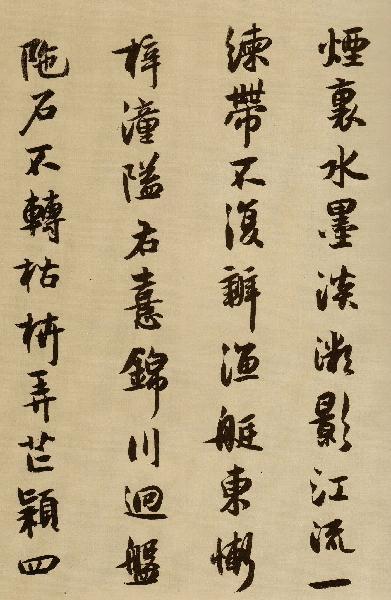 煙裏水墨淡影江流一
練帶不復辨艇東慚
梓潼隘右憙錦川迴盤
陁石不轉枯枿弄芒穎四